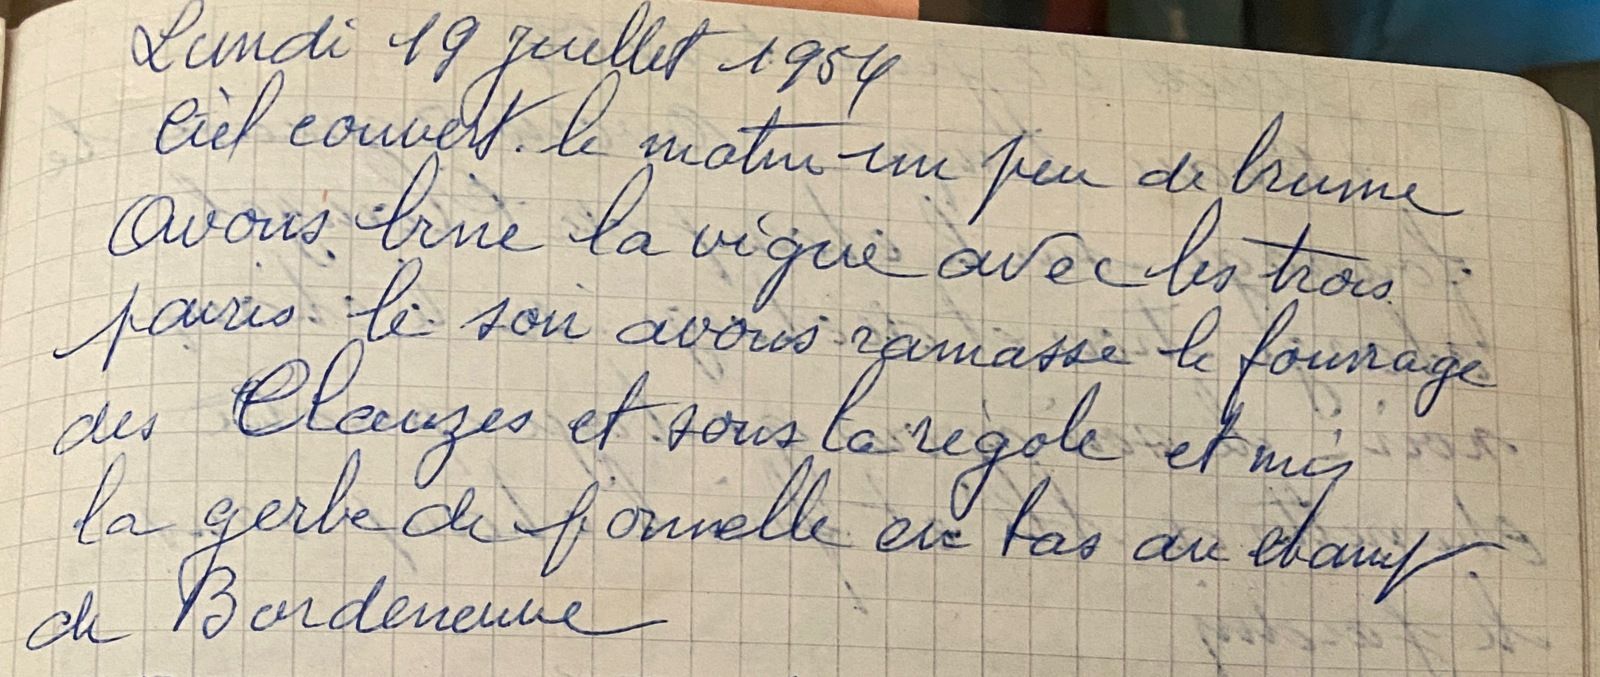 Lundi 19 juillet 1954
Ciel couvert. le matin un peu de brume
Avons biné la vigne avec les trois
paires. le soir avons ramassé le fourrage
des Clauzes et sous la régole et mis
la gerbe de en tas au champ
de Bordeneuve